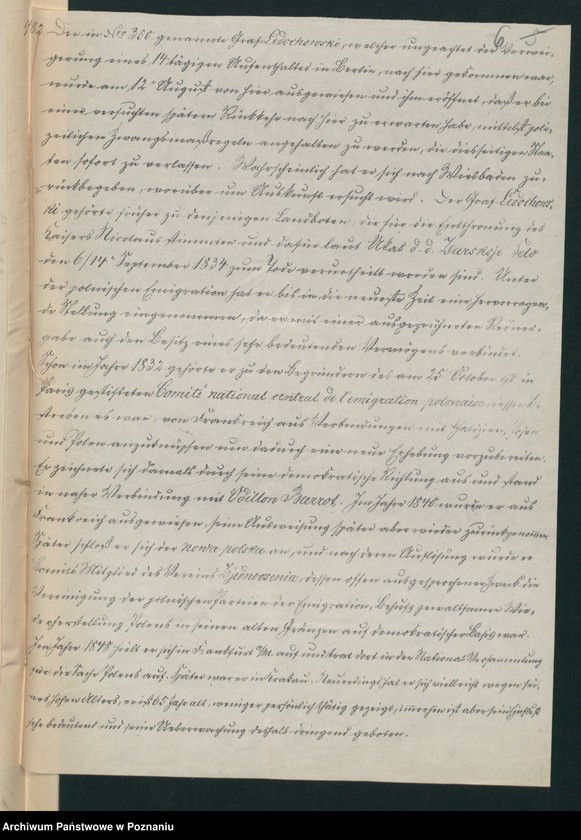 482. 6 5
Der in No. 350 genannte Graf Ledochowski, welcher ungeachtet der Verwei-
gerung eines 14 tägigen Aufenthaltes in Berlin, nach hier gekommen war,
wurde am 12. August von hier ausgewiesen und ihm eröffnet, daß er bei
einer versuchten spätern Rückkehr nach hier zu erwarten habe, mittelst poli-
zeilichen Zwangsmaßregeln angehalten zu werden, die diesseitigen Staa-
ten sofort zu verlassen. Wahrscheinlich hat er sich nach Wiesbaden zu-
rückbegeben, worüber um Auskunft ersucht wird. Der Graf Ledochows-
ki gehörte früher zu denjenigen Landboten, die für die Entthronung des
Kaisers Nicolaus stimmten und dafür laut Ukas d. d. Zarskoje Selo
den 6/14. September 1834 zum Tode verurtheilt worden sind. Unter
der polnischen Emigration hat er bis in die neueste Zeit eine hervorragen-
de Stellung eingenommen, da er mit einer ausgezeichneten Redner-
gabe auch den Besitz eines sehr bedeutenden Vermögens verbindet.
Schon im Jahre 1832 gehörte er zu den Begründern des am 25. October in
Paris gestifteten Comité national central de l'emigration polonaise, dessen Be-
streben es war, von Frankreich aus Verbindungen mit Galizien,
und Polen anzuknüpfen um dadurch eine neue Erhebung vorzubereiten.
Er zeichnete sich damals durch seine demokratische Richtung aus und stand
in naher Verbindung mit Odillon Barrot. Im Jahre 1840 wurde er aus
Frankreich ausgewiesen, seine Ausweisung später aber wieder zurückgenommen.
Später schloß er sich der nowa polska an, und nach deren Auflösung wurde er
Comité Mitglied des Vereins Zjednoczenia, dessen offen ausgesprochener Zweck die
Vereinigung der polnischen Parteien der Emigration, Behufs gewaltsamer Wie-
derherstellung Polens in seinen alten Gränzen auf demokratischer Basis war.
Im Jahre 1848 hielt er sich in Frankfurt a/M. auf und trat dort in der National Versammlung
für die Sache Polens auf. Später war er in Krakau. Neuerdings hat er sich vielleicht wegen sei-
nes hohen Alters, er ist 65 Jahr alt, weniger persönlich thätig gezeigt, immerhin ist aber sein Einfluß
sehr bedeutend und seine Ueberwachung deshalb dringend geboten.
Archiwum Państwowe w Poznaniu